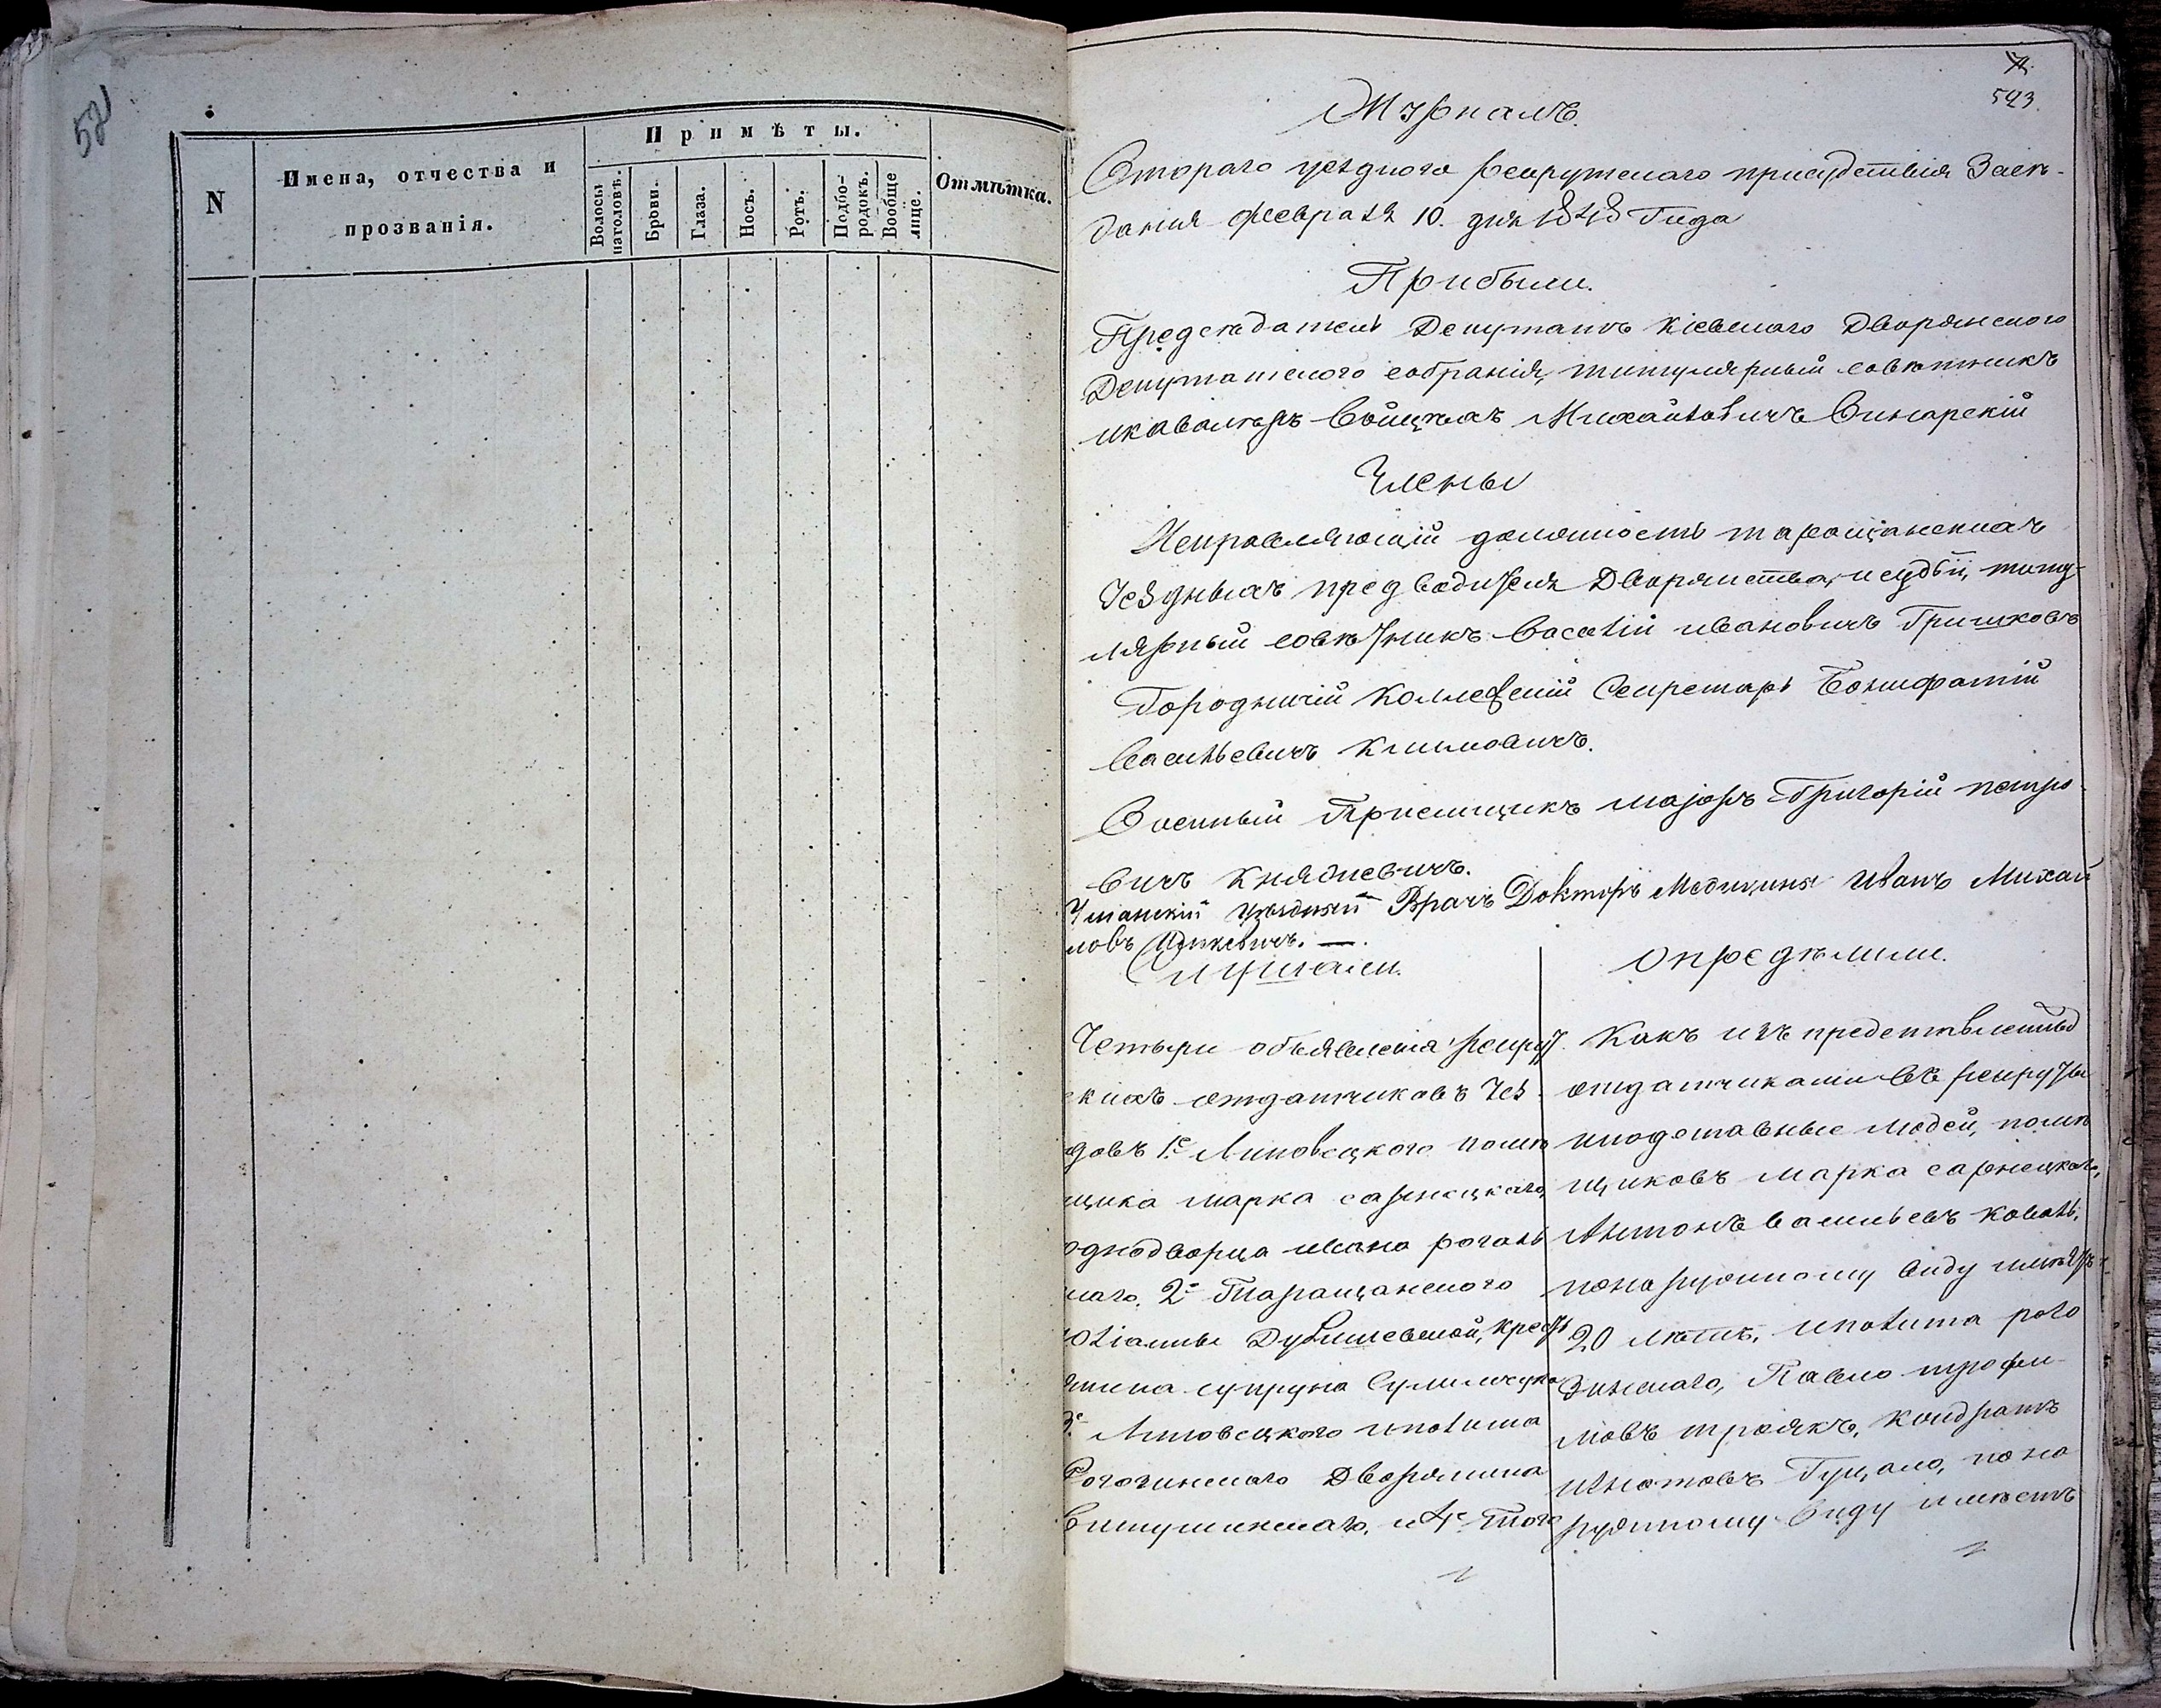 521
Примѣты.
N
Имена, отчества и
прозванія.
Волосы
наголовѣ.
Брови.
Глаза.
Носъ.
Ротъ.
Подбо-
родокъ.
Вообще
лице.
Отмѣтка.
523.
Журналъ.
Втораго уезднаго рекрутскаго присудствія Засѣ-
данія февраля 10. дня 1848 Года
Прибыли.
Предсѣдатель Депутатъ Кіевскаго Дворянского
Депутатского собранія, титулярный совѣтникъ
икавалеръ Войцѣхъ Михайловичъ
Члены
Исправляющій должность таращанскихъ
Уездныхъ предводителя Дворянства, исудьи, титу-
лярный совѣтникъ Василій ивановичъ Гришковъ
Городничій Коллежскій Секретарь Бонифатій
Васильевичъ Климовичъ.
Военный Пріемщикъ маіоръ Григорій петро-
вичъ Князиевичъ.
Уманскій Уѣздный Врачъ Докторъ Медицины Иванъ Михай
ловъ
Слушали.
Четыри объявленія рекрут
скихъ отдатчиковъ Уез
довъ 1е Липовецкого помѣ
щика марка сарнецкаго,
однодворца ивана
2е Таращанского
крестъ
янина супруна
3е Липовецкого иполита
Рогозинскаго Дворянина
и 4е Того
Опредѣлили.
Какъ изъ представленныхъ
отдатчиками въ рекруты
иподставные людей, помѣ
щиковъ марка сарнецкаго,
Антонъ васильевъ коваль,
понаружному виду имѣетъ
20 лѣтъ, иполита рого
зинскаго, Павло трофи-
мовъ троякъ, кондратъ
игнатовъ Гуцало, пона
ружному виду имѣетъ